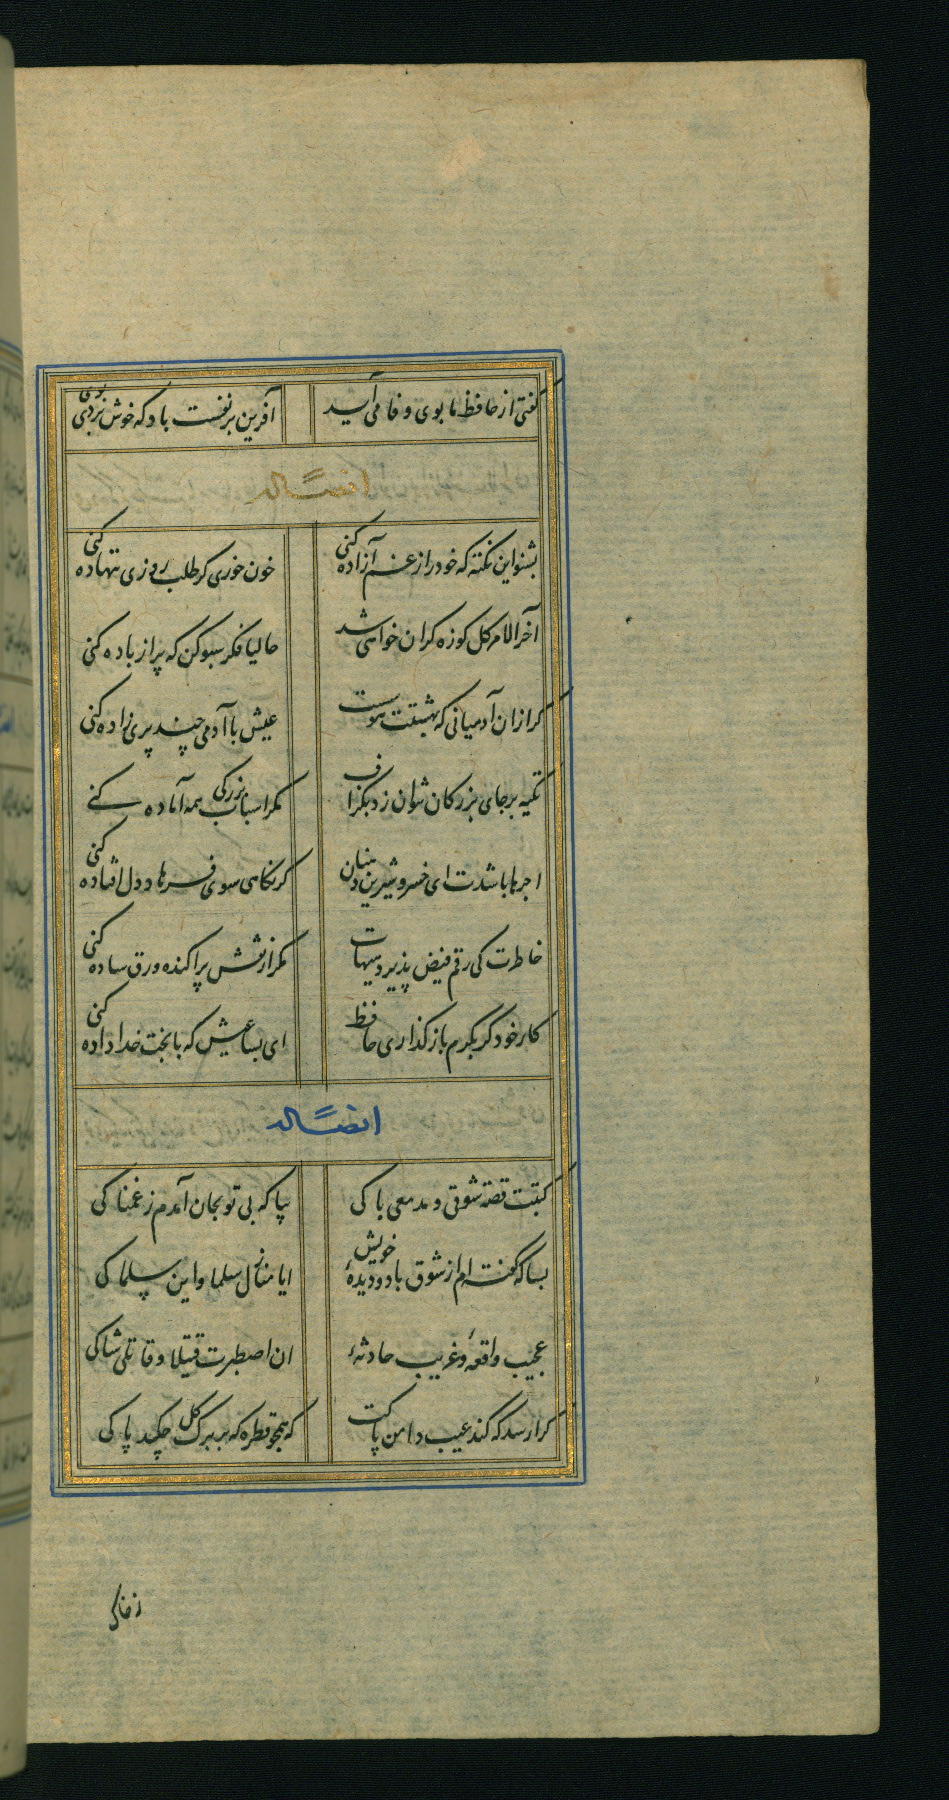 کفتی از حافظ ما بوی وفا می آید آفرین بر نفست باد که خوش بردی بوی
ایضاً له
بشنو این نکته که خود را ز غم آزاده کنی خون خوری کر طلب روزی ننهاده کنی
آخر الامر کل کوزه کران خواهی شد حالیا فکر سبو کن که پر از باده کنی
کر از ان آدمیانی که بهشتت هوست عیش با آدمی چند پری زاده کنی
تکیه بر جای بزرکان نتوان زد بکزاف مکر اسباب بزرکی همه آماده کنے
اجرها باشدت ای خسرو شیرین دهنان کر نکاهی سوی فرهاد دل افتاده کنی
خاطرت کی رقم فیض پذیرد هیهات مکر از نقش پراکنده ورق ساده کنی
کار خود کر بکرم باز کذاری حافظ ای بسا عیش که با بخت خداداده کنی
ایضاً له
کتبت قصة شوقی و مدمعی باکی بیا که بی تو بجان آمدم ز غمناکی
بسا که گفته ام از شوق با دو دیدهٔ خویش ایا منازل سلما و این سلماکی
عجیب واقعهٔ و غریب حادثهٔ ان اصطبرت قتیلا و قاتلی شاکی
کرا رسد که کند عیب دامن پاکت که همچو قطره که بر برک کل چکد پاکی
ز خاک